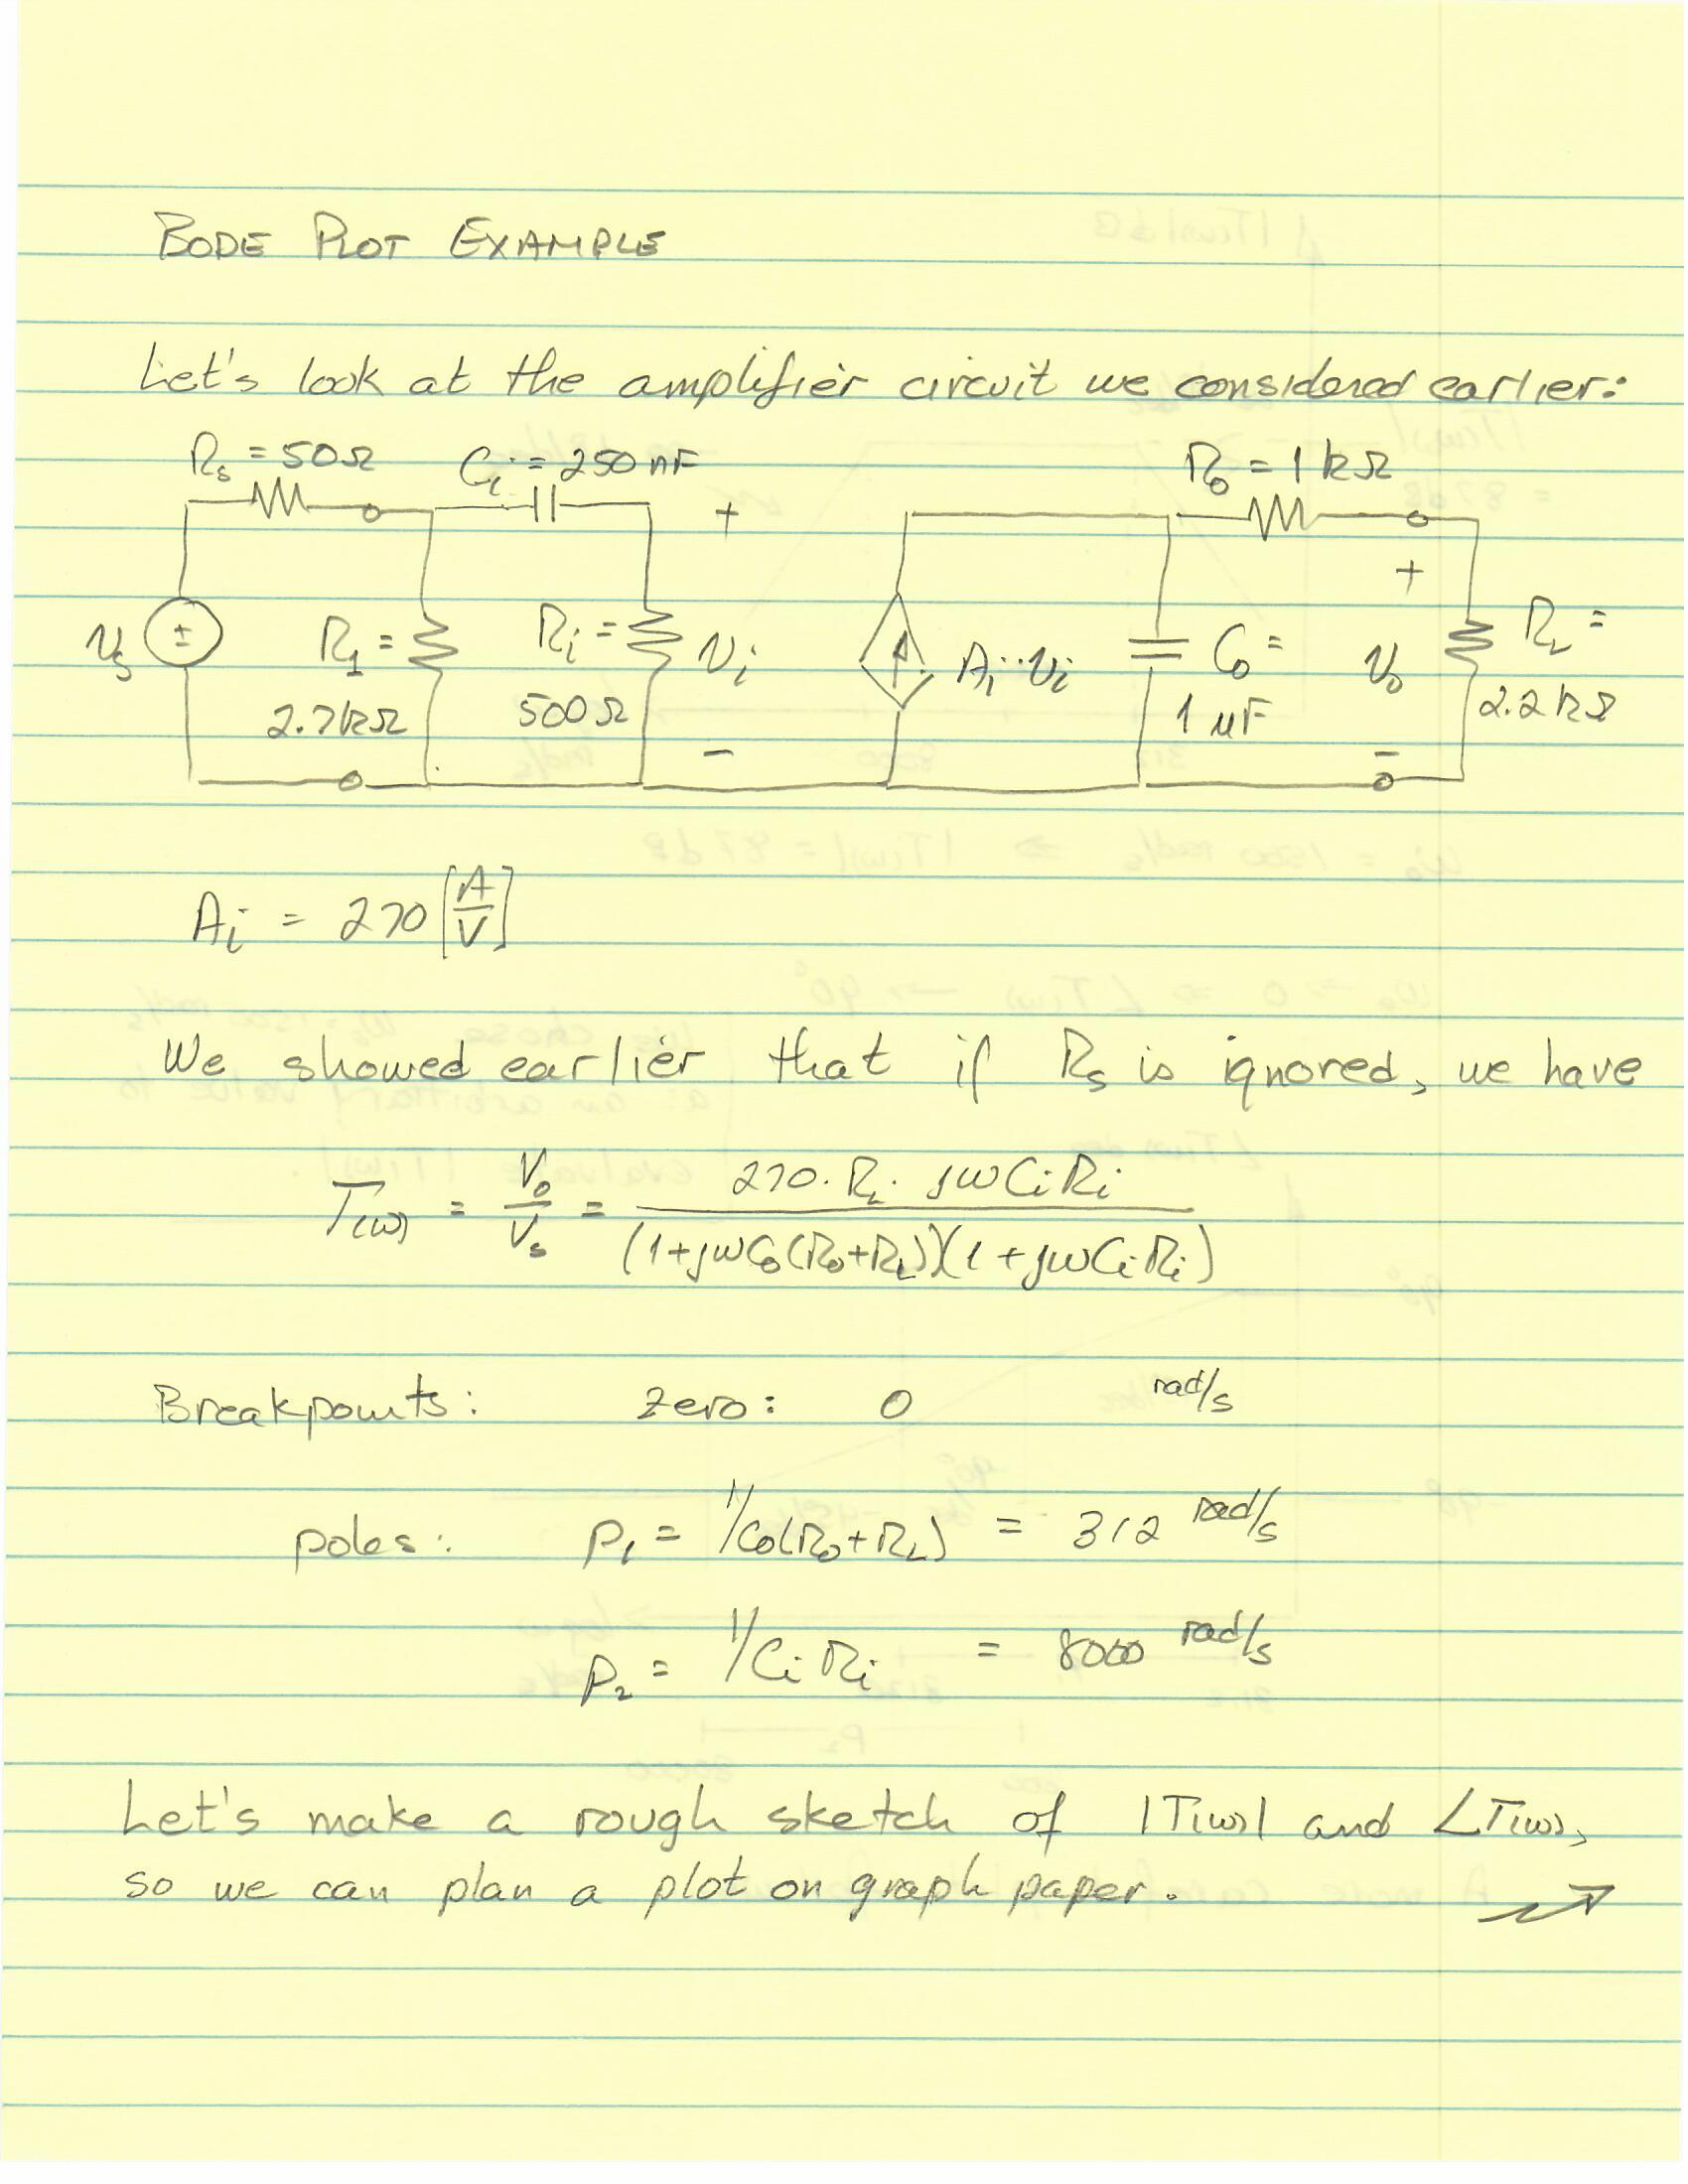 BODE PLOT EXAMPLE
Let's look at the amplifier circuit we considered earlier:
Rs = 50Ω Ci = 250 nF Ro = 1 kΩ
+
+
vs ± R1 = Ri = vi Ai·vi Co = vo RL =
2.7kΩ 500Ω 1 μF 2.2kΩ
− −
Ai = 270 [A/V]
We showed earlier that if Rs is ignored, we have
T(ω) = Vo/Vs = 270·RL·jωCiRi / (1+jωCo(Ro+RL))(1+jωCiRi)
Breakpoints: zero: 0 rad/s
poles: p1 = 1/Co(Ro+RL) = 312 rad/s
p2 = 1/CiRi = 8000 rad/s
Let's make a rough sketch of |T(ω)| and ∠T(ω),
so we can plan a plot on graph paper.